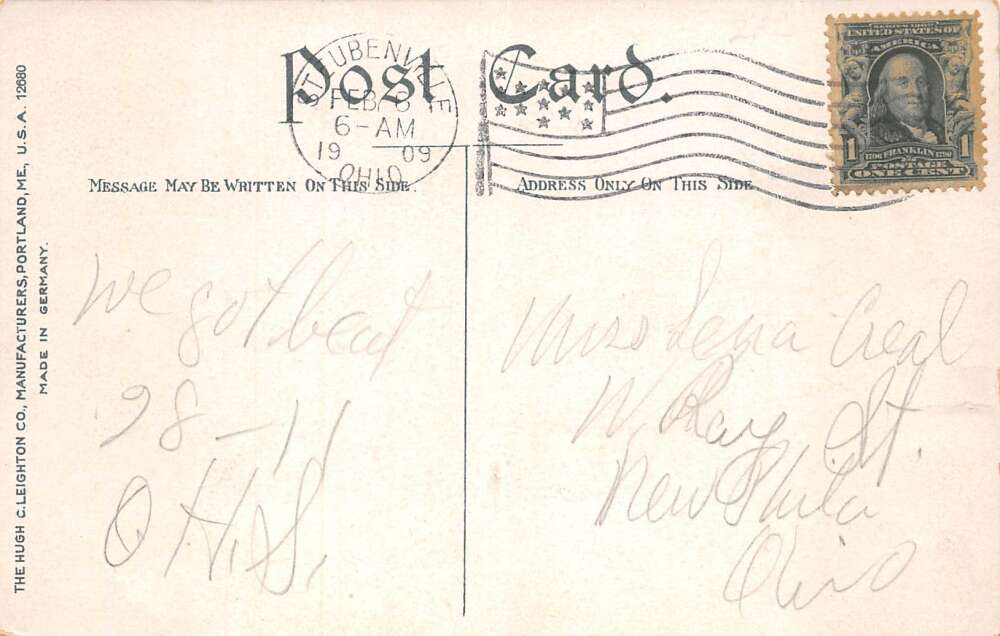 Post Card.
STEUBENVILLE
FEB 6
6-AM
19 09
OHIO
SERIES 1902
UNITED STATES OF
AMERICA
1 1
1706 FRANKLIN 1790
POSTAGE
ONE CENT
MESSAGE MAY BE WRITTEN ON THIS SIDE.
ADDRESS ONLY ON THIS SIDE
THE HUGH C. LEIGHTON CO., MANUFACTURERS, PORTLAND, ME., U.S.A. 12680
MADE IN GERMANY.
We got beat
98-11
O.H.S.
Miss Lena Creal
W. Ray St.
New Phila
Ohio